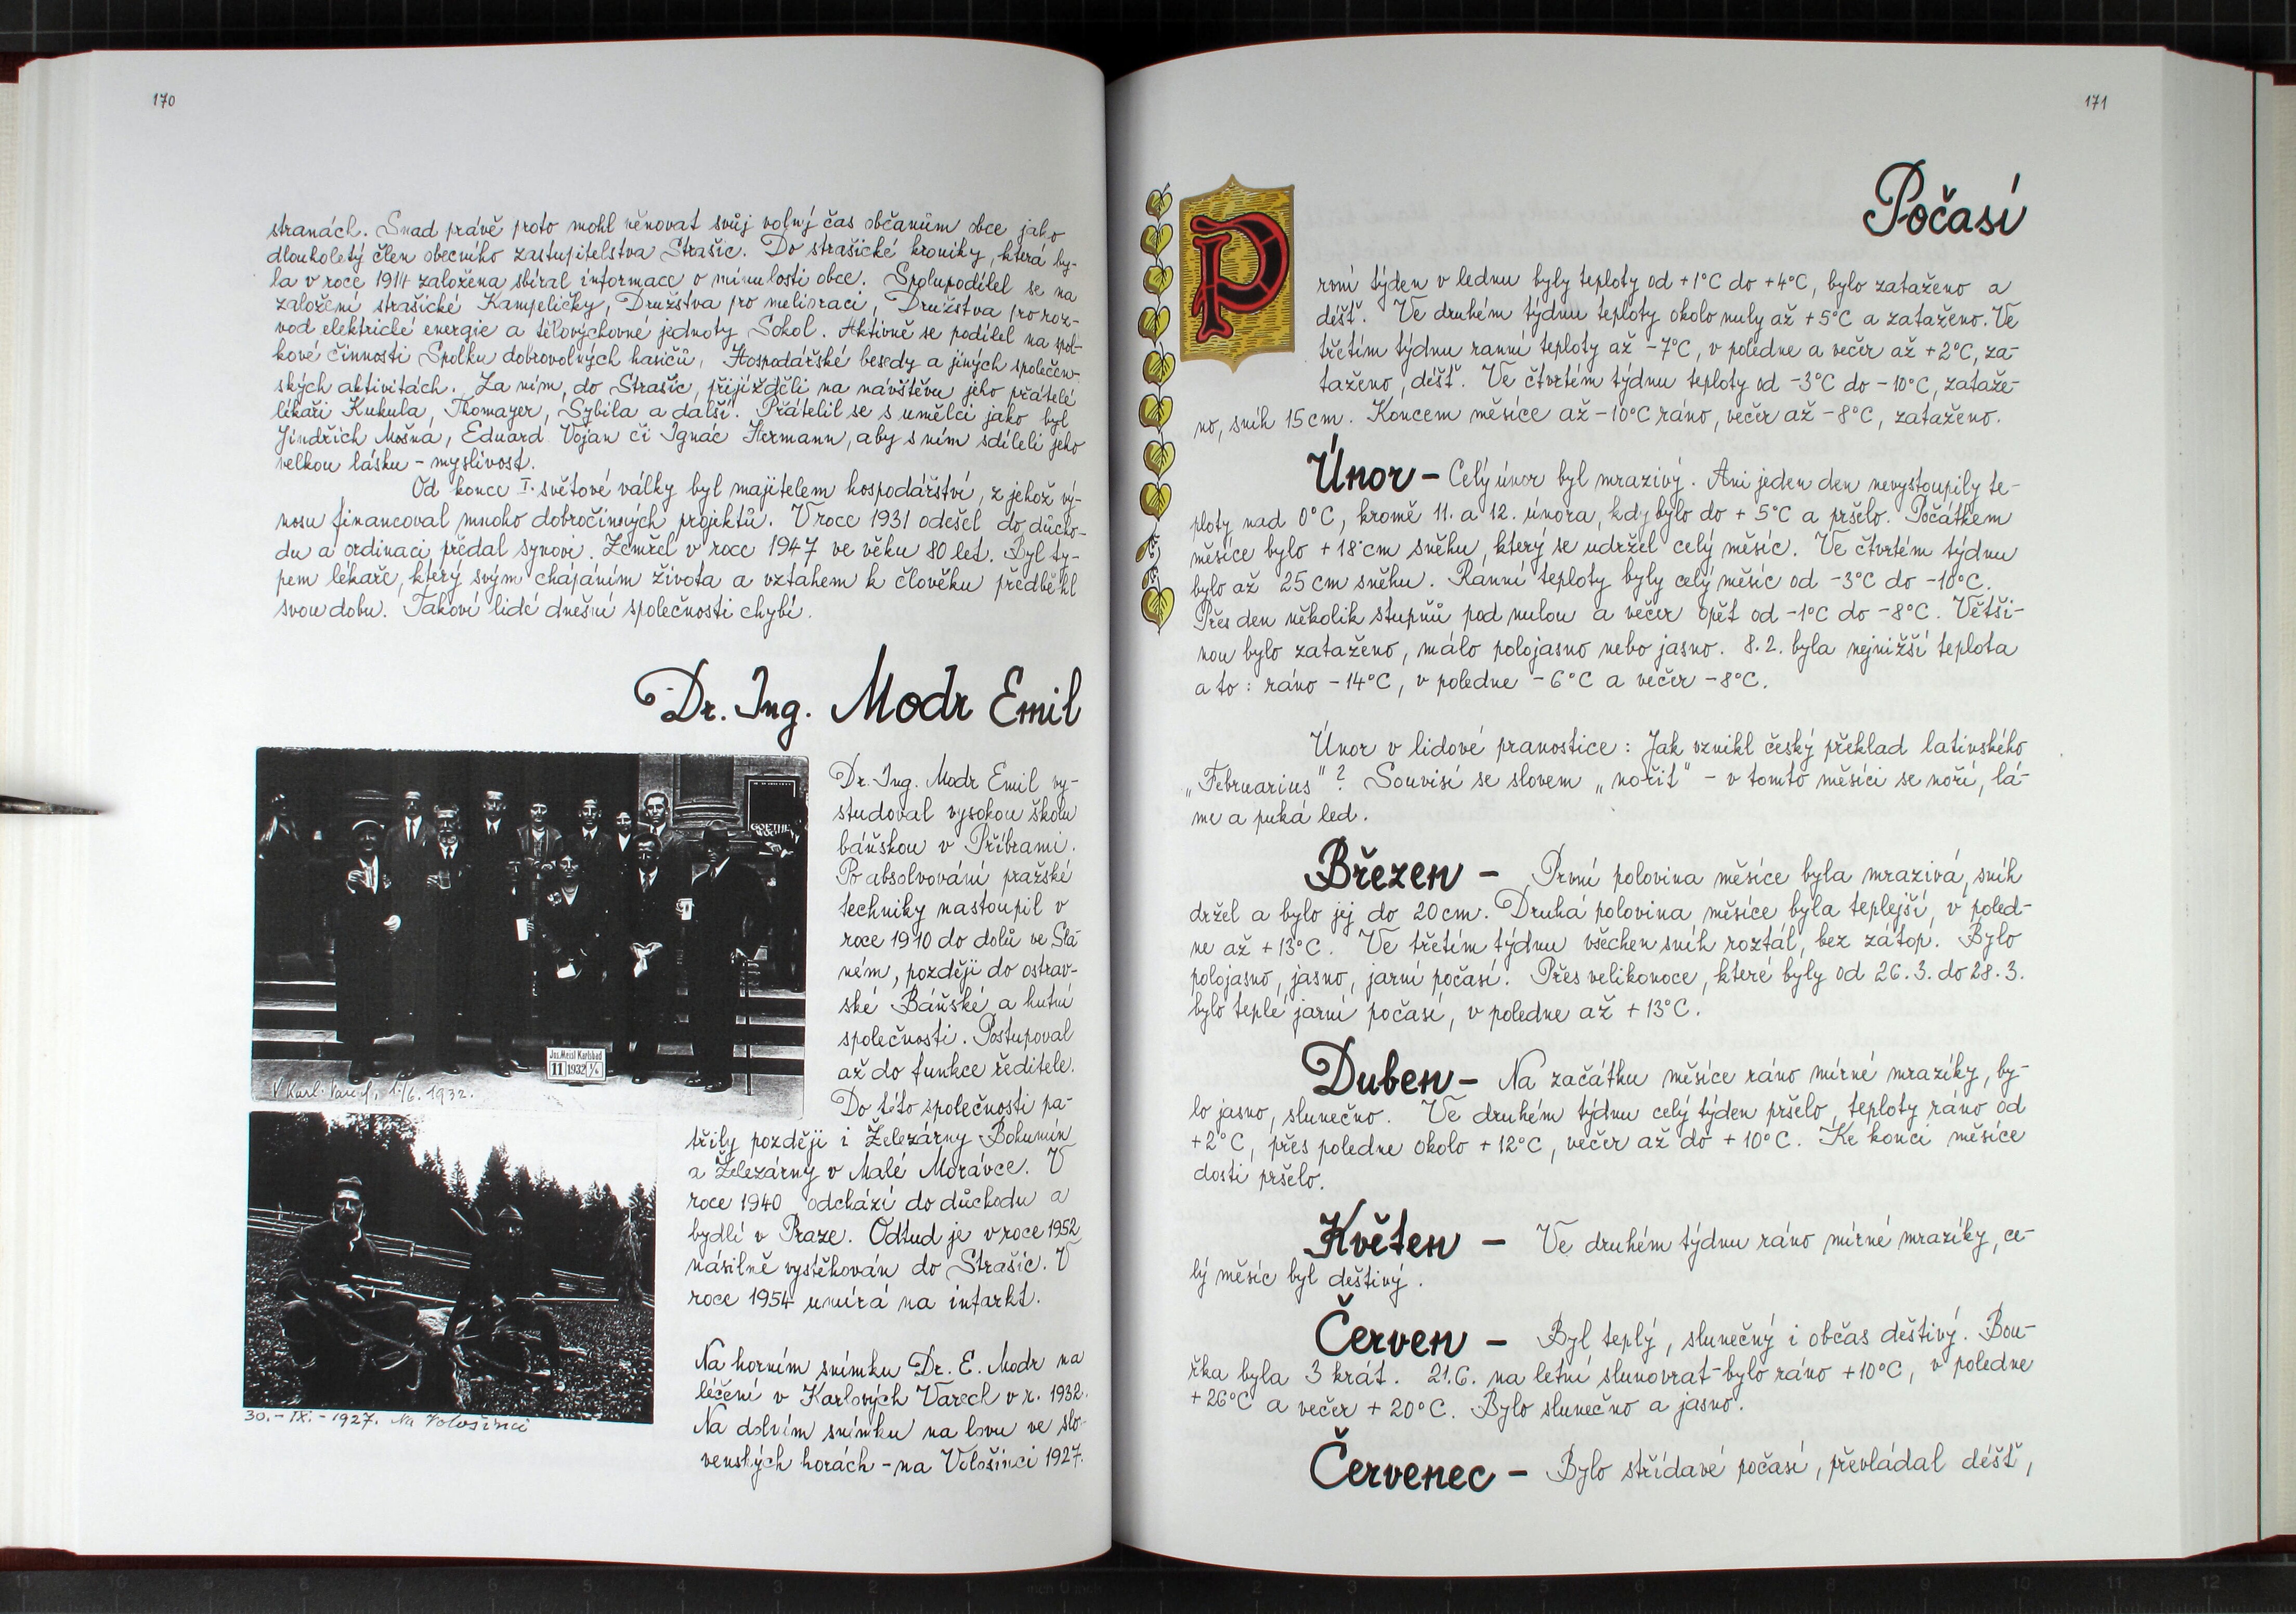 170
stranách. Snad právě proto mohl věnovat svůj volný čas občanům obce jako
dlouholetý člen obecního zastupitelstva Strašic. Do strašické kroniky, která by-
la v roce 1914 založena sbíral informace o minulosti obce. Spolupodílel se na
založení strašické Kampeličky, Družstva pro melioraci, Družstva pro roz-
vod elektrické energie a tělovýchovné jednoty Sokol. Aktivně se podílel na spol-
kové činnosti Spolku dobrovolných hasičů, Hospodářské besedy a jiných společen-
ských aktivitách. Za ním, do Strašic, přijížděli na návštěvu jeho přátelé
lékaři Kukula, Thomayer, Sybila a další. Přátelil se s umělci jako byl
Jindřich Mošna, Eduard Vojan či Ignác Hermann, aby s ním sdíleli jeho
velkou lásku - myslivost.
Od konce I. světové války byl majitelem hospodářství, z jehož vý-
nosu financoval mnoho dobročinných projektů. V roce 1931 odešel do důcho-
du a ordinaci předal synovi. Zemřel v roce 1947 ve věku 80 let. Byl ty-
pem lékaře, který svým chápáním života a vztahem k člověku předběhl
svou dobu. Takoví lidé dnešní společnosti chybí.
Dr. Ing. Modr Emil
GOETHE
WOCHE
Jos. Meisl Karlsbad
11 1932 1/6
V Karl. Varech, 1/6. 1932.
Dr. Ing. Modr Emil vy-
studoval vysokou školu
báňskou v Příbrami.
Po absolvování pražské
techniky nastoupil v
roce 1910 do dolů ve Sla-
ném, později do ostrav-
ské Báňské a hutní
společnosti. Postupoval
až do funkce ředitele.
Do této společnosti pa-
třily později i Železárny Bohumín
a Železárny v Malé Morávce. V
roce 1940 odchází do důchodu a
bydlí v Praze. Odtud je v roce 1952
násilně vystěhován do Strašic. V
roce 1954 umírá na infarkt.
30. - IX. - 1927. Na Vološinci
Na horním snímku Dr. E. Modr na
léčení v Karlových Varech v r. 1932.
Na dolním snímku na lovu ve slo-
venských horách - na Vološinci 1927.
171
Počasí
P
rvní týden v lednu byly teploty od +1°C do +4°C, bylo zataženo a
déšť. Ve druhém týdnu teploty okolo nuly až +5°C a zataženo. Ve
třetím týdnu ranní teploty až -7°C, v poledne a večer až +2°C, za-
taženo, déšť. Ve čtvrtém týdnu teploty od -3°C do -10°C, zataže-
no, sníh 15 cm. Koncem měsíce až -10°C ráno, večer až -8°C, zataženo.
Únor - Celý únor byl mrazivý. Ani jeden den nevystoupily te-
ploty nad 0°C, kromě 11. a 12. února, kdy bylo do + 5°C a pršelo. Počátkem
měsíce bylo + 18 cm sněhu, který se udržel celý měsíc. Ve čtvrtém týdnu
bylo až 25 cm sněhu. Ranní teploty byly celý měsíc od -3°C do -10°C.
Přes den několik stupňů pod nulou a večer opět od -1°C do -8°C. Větši-
nou bylo zataženo, málo polojasno nebo jasno. 8.2. byla nejnižší teplota
a to : ráno -14°C, v poledne -6°C a večer -8°C.
Únor v lidové pranostice : Jak vznikl český překlad latinského
„Februarius"? Souvisí se slovem „nořit" - v tomto měsíci se noří, lá-
me a puká led.
Březen - První polovina měsíce byla mrazivá, sníh
držel a bylo jej do 20 cm. Druhá polovina měsíce byla teplejší, v poled-
ne až +13°C. Ve třetím týdnu všechen sníh roztál, bez zátop. Bylo
polojasno, jasno, jarní počasí. Přes velikonoce, které byly od 26.3. do 28.3.
bylo teplé jarní počasí, v poledne až +13°C.
Duben - Na začátku měsíce ráno mírné mrazíky, by-
lo jasno, slunečno. Ve druhém týdnu celý týden pršelo, teploty ráno od
+2°C, přes poledne okolo +12°C, večer až do +10°C. Ke konci měsíce
dosti pršelo.
Květen - Ve druhém týdnu ráno mírné mrazíky, ce-
lý měsíc byl deštivý.
Červen - Byl teplý, slunečný i občas deštivý. Bou-
řka byla 3 krát. 21.6. na letní slunovrat bylo ráno +10°C, v poledne
+26°C a večer +20°C. Bylo slunečno a jasno.
Červenec - Bylo střídavé počasí, převládal déšť,